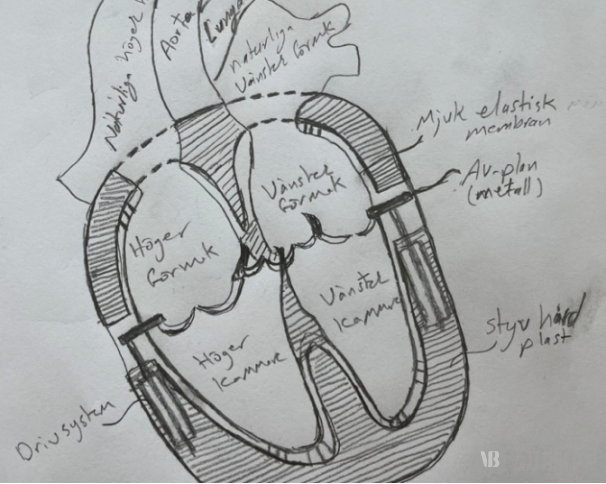 Naturliga höger
Aorta
Lunga
naturliga
Vänster förmak
Mjuk elastisk
membran
AV-plan
(metall)
Vänster
förmak
Höger
förmak
Vänster
kammare
Höger
kammare
styv hård
plast
Drivsystem
VB